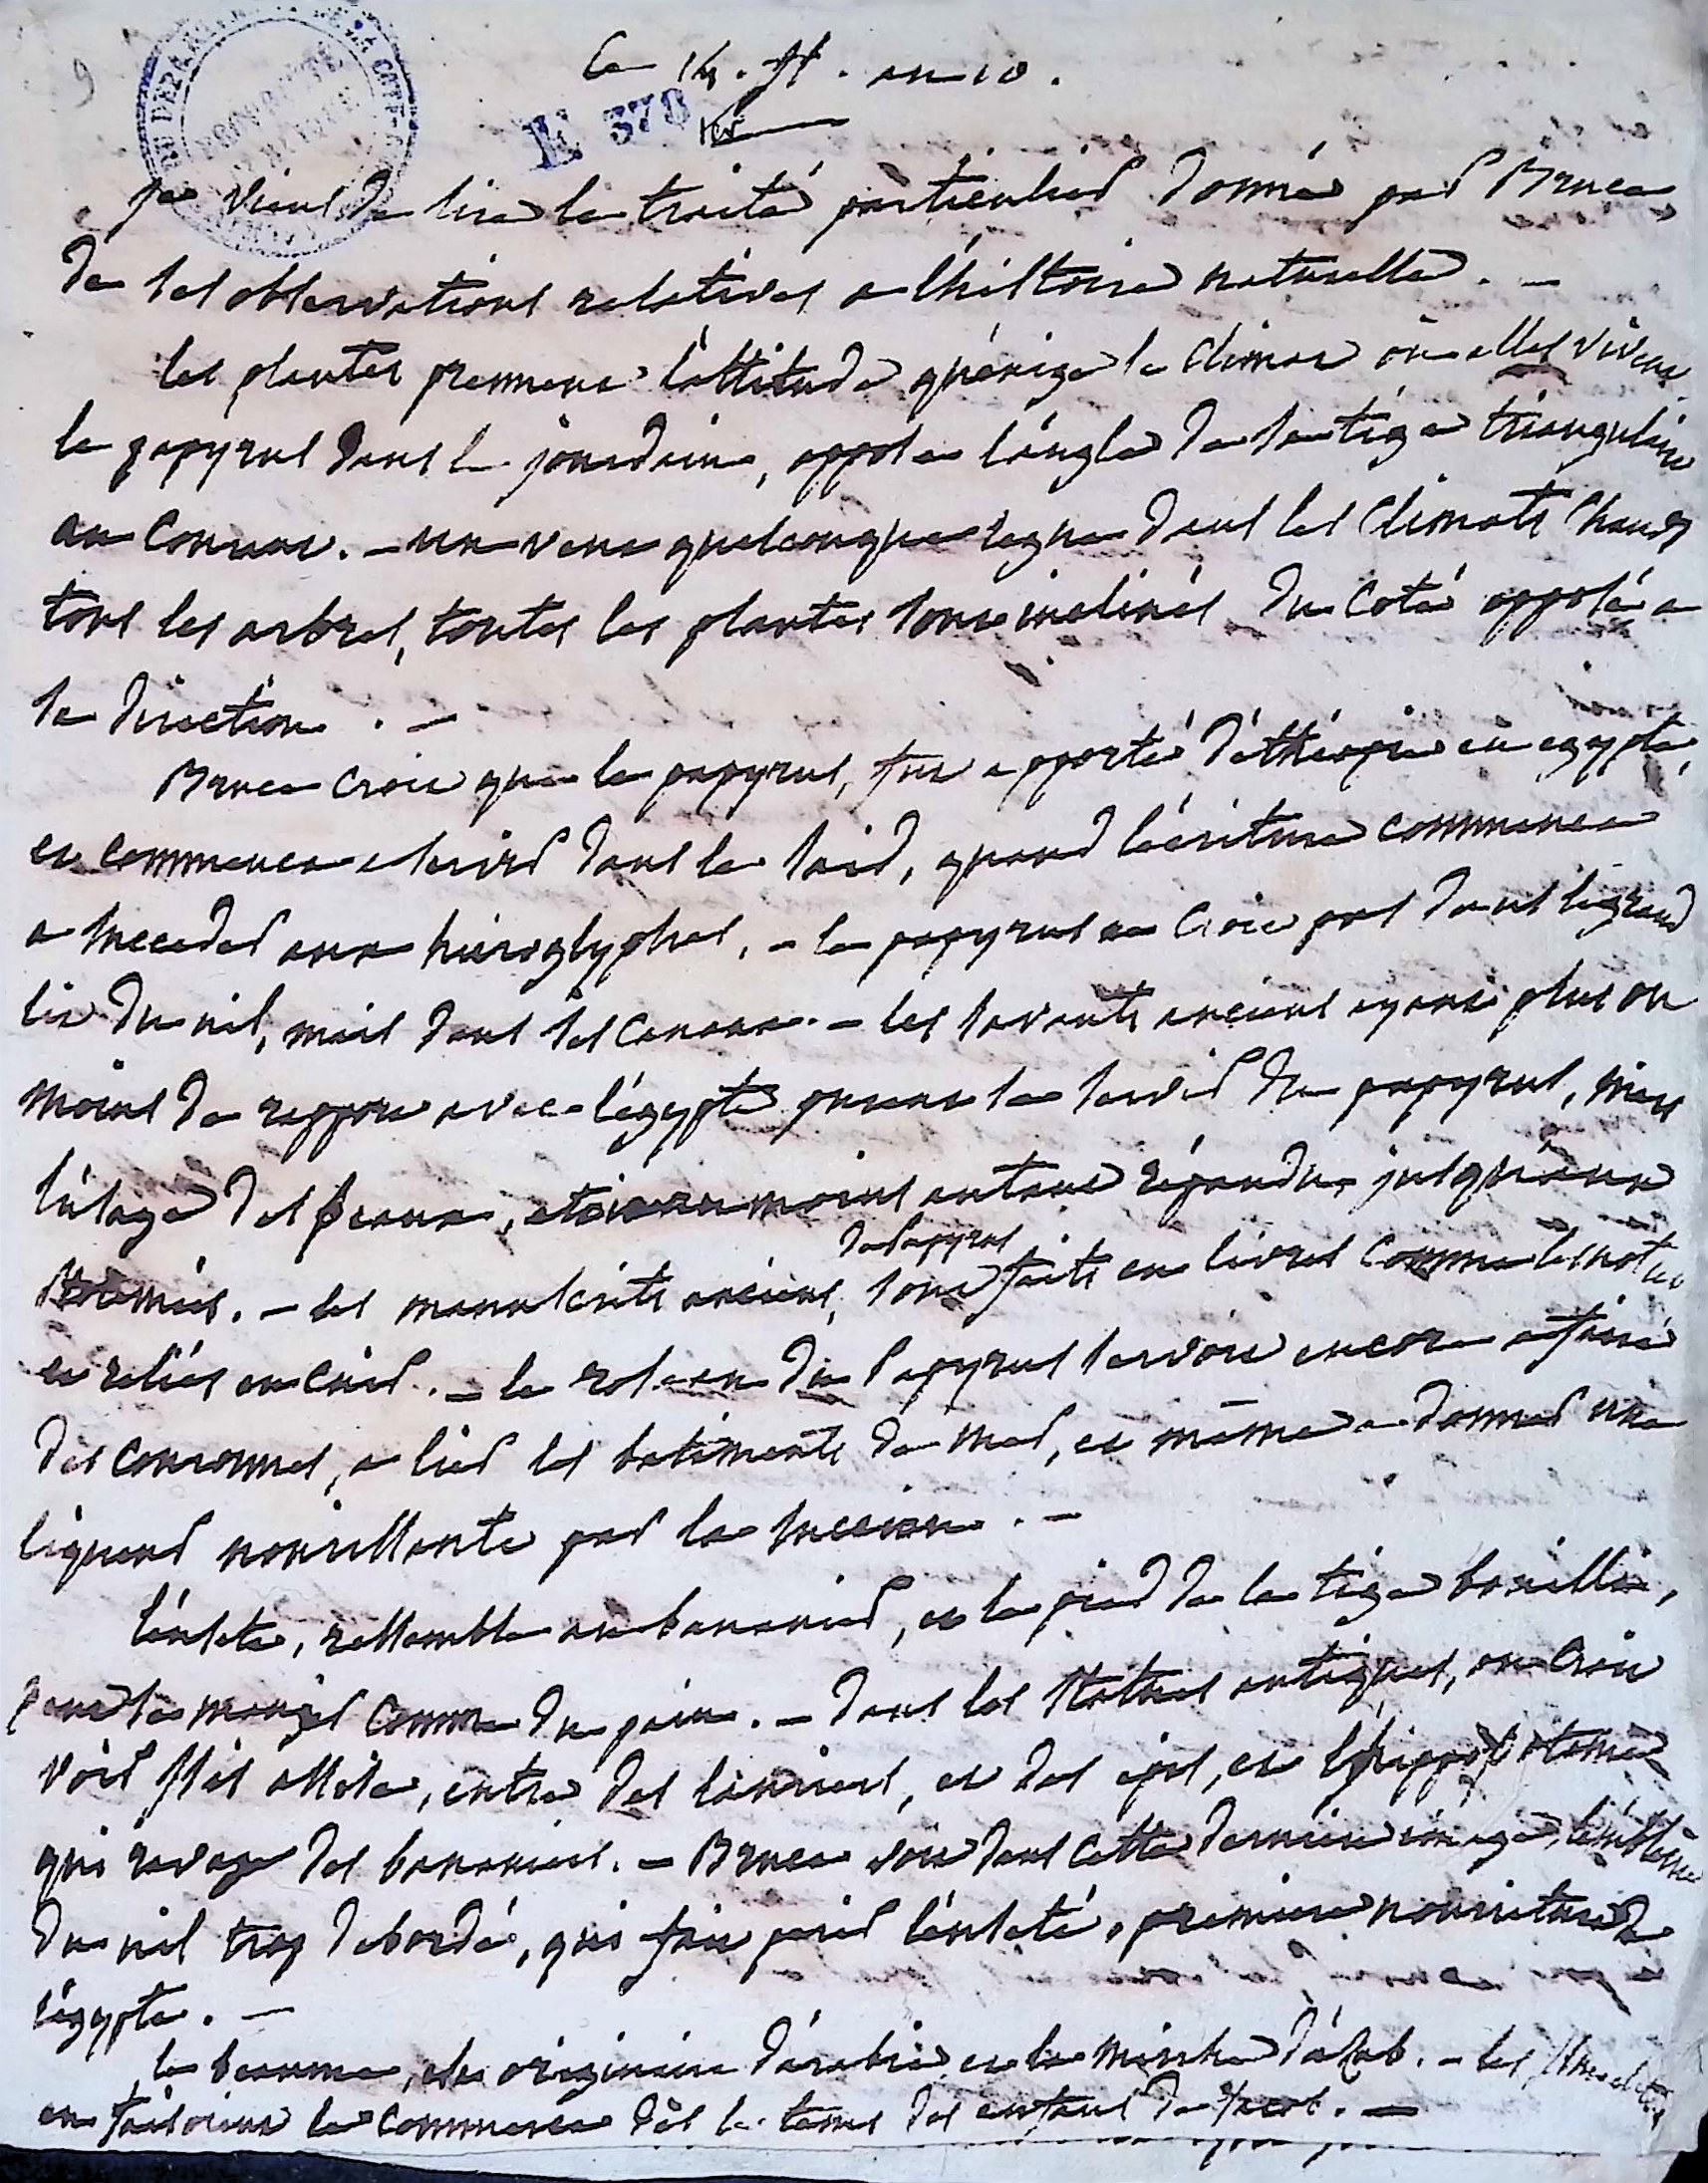 9
Ce 14. fl. an 10.
E 378
ter
Je viens de lire le traité particulier donné par Bruce
de ses observations relatives a l'histoire naturelle. —
les plantes prennent l'attitude qu'exige le climat ou elles vivent
le papyrus dans le jourdain, oppose l'angle de sa tige triangulaire
au Courant. — un vent quelconque regne dans les Climats Chauds
tous les arbres, toutes les plantes sont inclinés du coté opposé a
sa direction. —
Bruce croit que le papyrus, fut apporté d'éthiopie en egypte,
et commenca a servir dans le said, quand l'écriture commenca
a succeder aux hieroglyphes. — le papyrus ne croit pas dans le grand
lit du nil, mais dans ses canaux. — les savants anciens ayant plus ou
moins de rapport avec l'égypte purent se servir du papyrus, mais
l'usage des peaux, etoit au moins autant répandu, jusqu'aux
Ptolémées. — les manuscrits anciens, de papyrus sont faits en livres comme les notres
et reliés en cuir. — le roseau du papyrus servoit encore a faire
des couronnes, a lier les batiments de mer, et même a donner une
liqueur nourissante par la succion. —
l'ensete, ressemble au bananier, et le pied de la tige bouillie,
peut se manger comme du pain. — dans les statues antiques, on croit
voir Isis assise, entre des lauriers, et des epis, et l'hippopotame
qui ravage des bananiers. — Bruce voit dans cette derniere image, l'emblême
du nil trop debordé, qui fait perir l'enseté, premiere nourriture de
l'égypte. —
le beaume, est originaire d'arabie, et la mirrhe d'aZab. — les Ismaelites
en faisoient le commerce dès le tems des enfans de Jacob. —